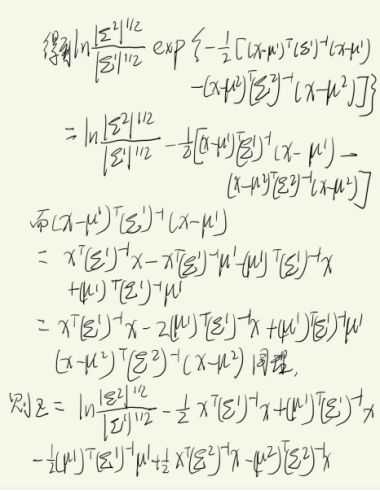 得到 ln |Σ²|^{1/2} / |Σ¹|^{1/2} exp{-1/2[(x-μ¹)ᵀ(Σ¹)⁻¹(x-μ¹)
-(x-μ²)ᵀ(Σ²)⁻¹(x-μ²)]}
= ln |Σ²|^{1/2} / |Σ¹|^{1/2} - 1/2[(x-μ¹)ᵀ(Σ¹)⁻¹(x-μ¹) -
(x-μ²)ᵀ(Σ²)⁻¹(x-μ²)]
而(x-μ¹)ᵀ(Σ¹)⁻¹(x-μ¹)
= xᵀ(Σ¹)⁻¹x - xᵀ(Σ¹)⁻¹μ¹ - (μ¹)ᵀ(Σ¹)⁻¹x
+(μ¹)ᵀ(Σ¹)⁻¹μ¹
= xᵀ(Σ¹)⁻¹x - 2(μ¹)ᵀ(Σ¹)⁻¹x + (μ¹)ᵀ(Σ¹)⁻¹μ¹
(x-μ²)ᵀ(Σ²)⁻¹(x-μ²)同理,
则z = ln |Σ²|^{1/2} / |Σ¹|^{1/2} - 1/2 xᵀ(Σ¹)⁻¹x + (μ¹)ᵀ(Σ¹)⁻¹x
- 1/2(μ¹)ᵀ(Σ¹)⁻¹μ¹ + 1/2 xᵀ(Σ²)⁻¹x - (μ²)ᵀ(Σ²)⁻¹x